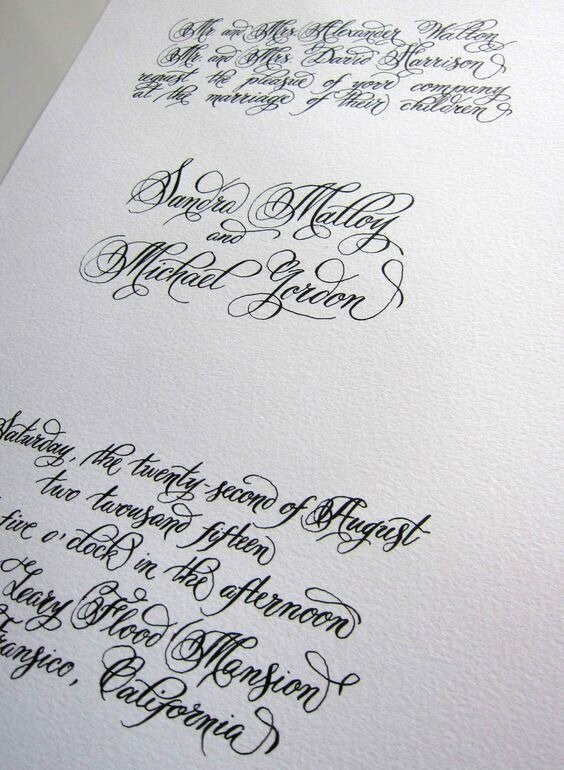 Mr. and Mrs. Alexander Walton
Mr. and Mrs. David Harrison
request the pleasue of your company
at the marriage of their children
Sandra Malloy
and
Michael Gordon
Saturday, the twenty-second of August
two twousand fifteen
five o'clock in the afternoon
Leary Flood Mansion
Fransico, California